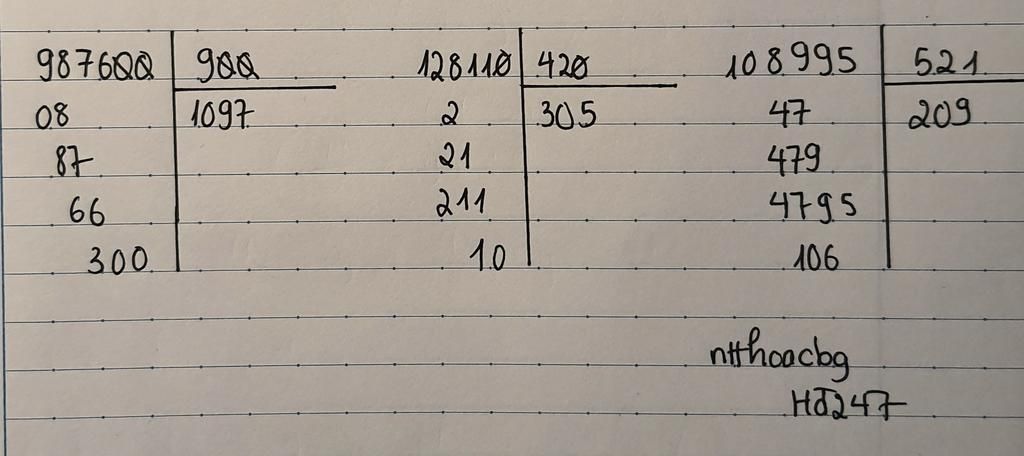 987600 900 128110 420 108995 521
08 1097 2 305 47 209
87 21 479
66 211 4795
300 10 106
ntthoacbg
HĐ247